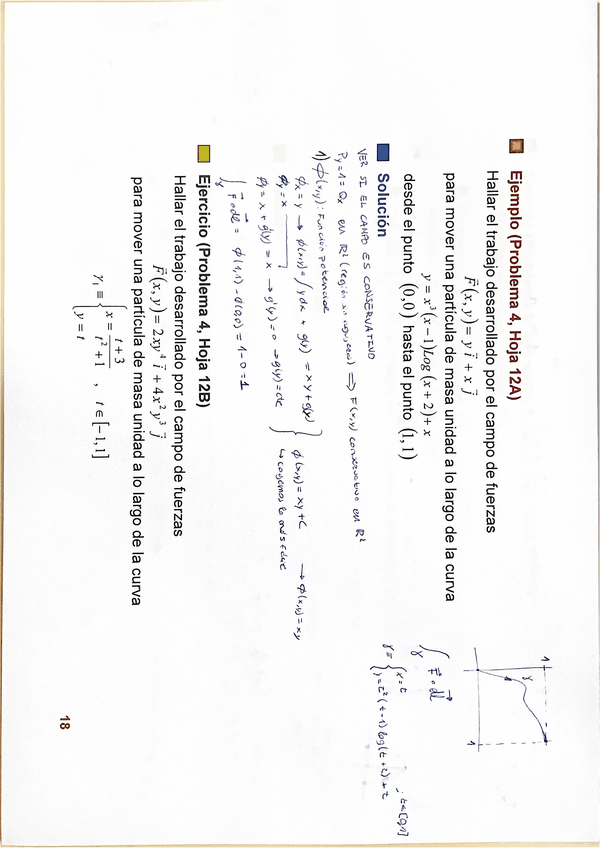 Ejemplo (Problema 4, Hoja 12A)
Hallar el trabajo desarrollado por el campo de fuerzas
F⃗(x, y) = y i⃗ + x j⃗
para mover una partícula de masa unidad a lo largo de la curva
y = x³(x − 1)Log(x + 2) + x
desde el punto (0,0) hasta el punto (1,1)
1
γ
1
∫γ F⃗ ∘ dl⃗
γ ≡ { x = t
y = t²(t-1) log(t+2) + t ; t ∈ [0,1]
Solución
VER SI EL CAMPO ES CONSERVATIVO
Py = 1 = Qx en R² (región sin agujeros) ⟹ F(x,y) conservativo en R²
1) ϕ(x,y): Función potencial
ϕx = y → ϕ(x,y) = ∫ y dx + g(y) = xy + g(y)
ϕy = x
ϕy = x + g'(y) = x → g'(y) = 0 → g(y) = cte
} ϕ(x,y) = xy + C → ϕ(x,y) = xy
↳ cogemos la más fácil
∫γ F⃗ ∘ dl⃗ = ϕ(1,1) - ϕ(0,0) = 1 - 0 = 1
Ejercicio (Problema 4, Hoja 12B)
Hallar el trabajo desarrollado por el campo de fuerzas
F⃗(x, y) = 2xy⁴ i⃗ + 4x²y³ j⃗
para mover una partícula de masa unidad a lo largo de la curva
γ₁ ≡ { x = (t + 3)/(t² + 1)
y = t , t ∈ [−1,1]
18